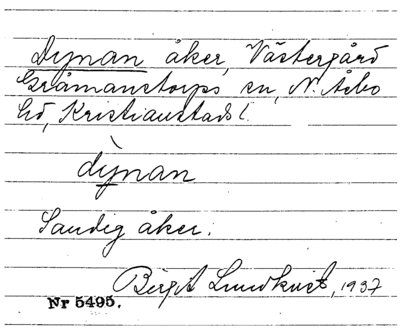 Dynan åker, Västergård
Gråmanstorps sn, N. Åsbo
hd, Kristianstads l.
dỳnan
Sandig åker.
Birgit Lundkvist, 1937
Nr 5495.